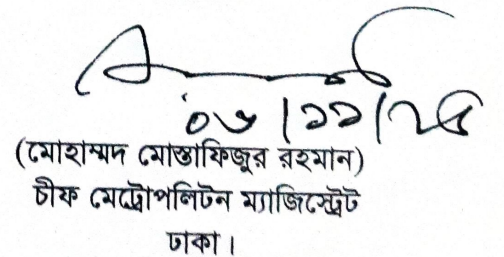 ০৬/১১/২৫
(মোহাম্মদ মোস্তাফিজুর রহমান)
চীফ মেট্রোপলিটন ম্যাজিস্ট্রেট
ঢাকা।